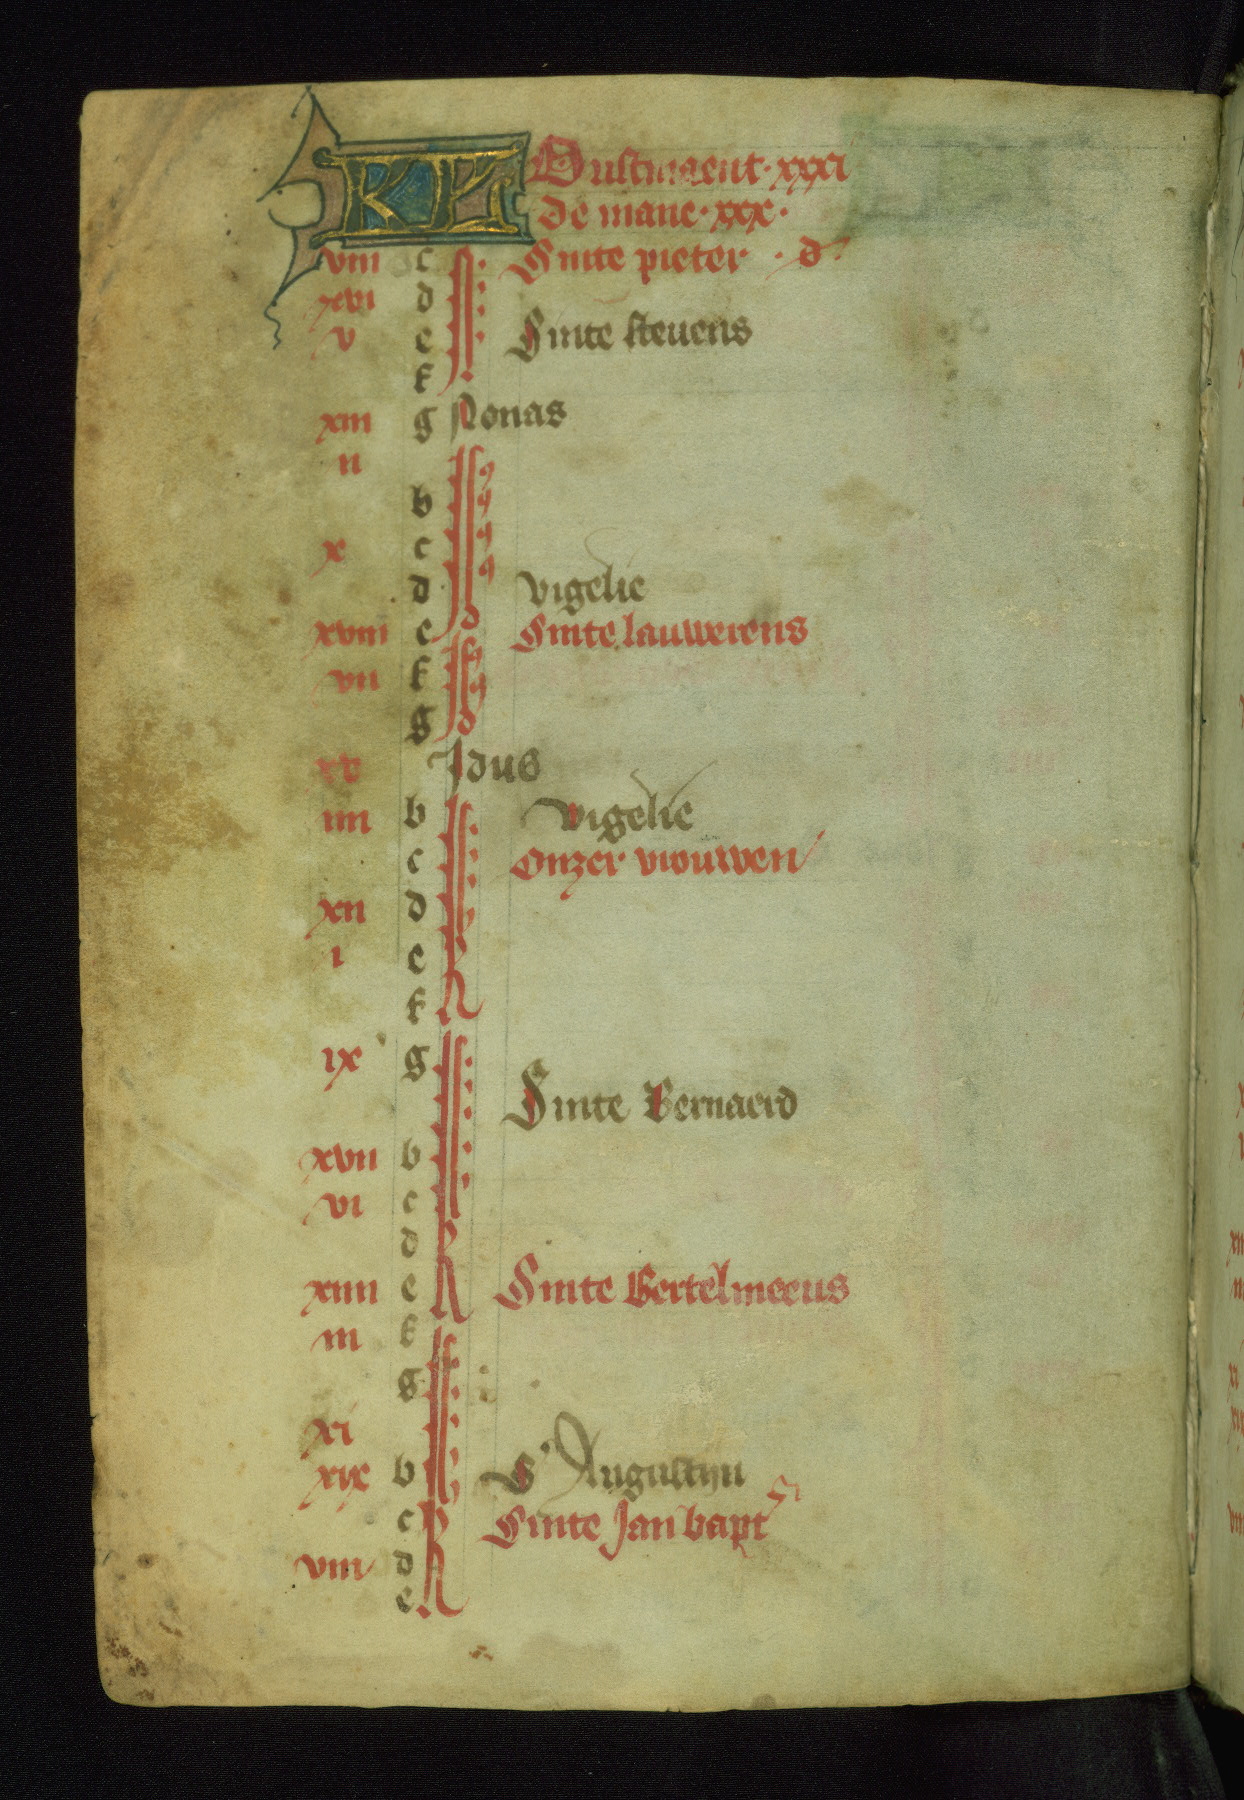 KL Oustmaent · xxxi
De mane · xxx ·
viii c Sinte pieter · d ·
xvi d
v e Sinte stevens
f
xiii g Nonas
ii
b
x c
d vigelie
xviii e Sinte lauwerens
vii f
g
xv Idus
iiii b vigelie
c Onzer vrouwen
xii d
i e
f
ix g
Sinte Bernaerd
xvii b
vi c
d
xiiii e Sinte Bertelmeeus
iii f
g
xi
xix b S' Augustijn
c Sinte Jan bapt
viii d
e